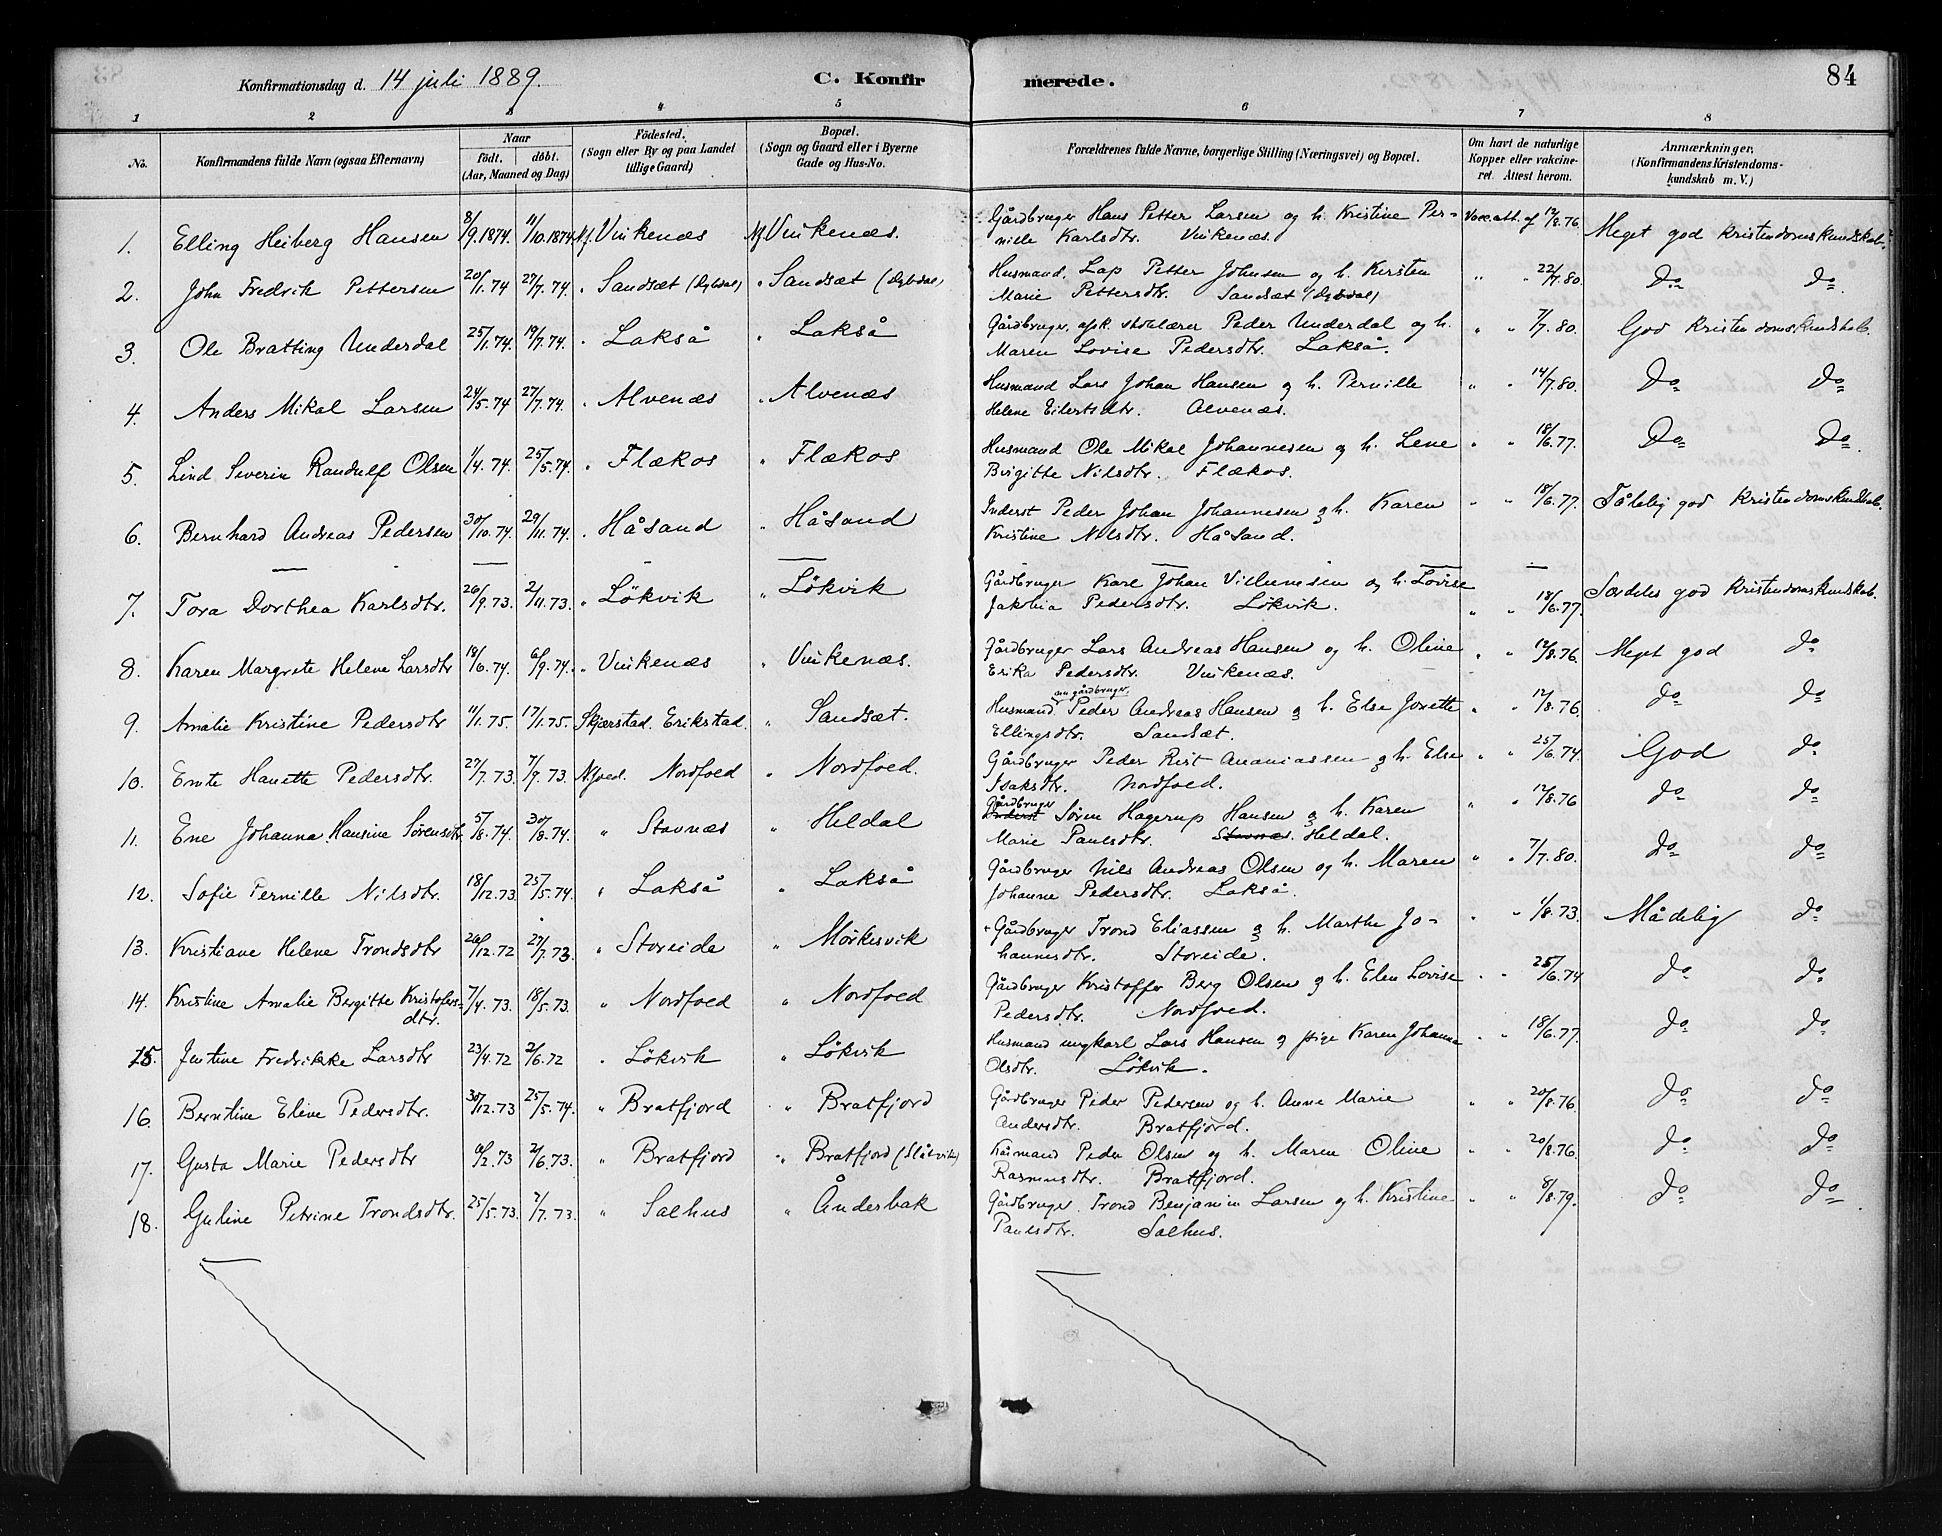 Konfirmationsdag d. 14 juli 1889. C. Konfirmerede. 84
1 2 3 4 5 6 7 8
No. Konfirmandens fulde Navn (ogsaa Efternavn) Naar födt. döbt. (Aar, Maaned og Dag) Födested. (Sogn eller By og paa Landet tillige Gaard) Bopæl. (Sogn og Gaard eller i Byerne Gade og Hus-No. Forældrenes fulde Navne, borgerlige Stilling (Næringsvei) og Bopæl. Om havt de naturlige Kopper eller vakcineret. Attest herom. Anmærkninger, (Konfirmandens Kristendomskundskab m. V.)
1. Elling Heiberg Hansen 8/9.1874. 11/10.1874. Nf. Vinkenæs Nf. Vinkenæs. Gårdbruger Hans Petter Larsen og h. Kristine Per-
nille Karlsdtr. Vinkenæs. Vacc. att. af 12/8.76 Meget god kristendomskundskab.
2. John Fredrik Pettersen 20/1.74 27/7.74. " Sandsæt (Dybdal) " Sandsæt (Dybdal) Husmand, Lap Petter Johnsen og h. Kirsten
Marie Pettersdtr. Sandsæt (Dybdal) " " 22/7.80. Do Do
3. Ole Bratting Underdal 25/1.74. 19/7.74. " Lakså " Lakså Gårdbruger, afsk. skolelærer Peder Underdal og h.
Maren Lovise Pedersdtr. Lakså. " " 7/7.80. God kristendomskundskab.
4. Anders Mikal Larsen 24/5.74 27/7.74. " Alvenæs " Alvenæs Husmand Lars Johan Hansen og h. Pernille
Helene Eilertsdtr. Alvenæs. " " 14/7.80. Do Do
5. Lind Severin Randulf Olsen 1/4.74. 25/5.74. " Flækos " Flækos Husmand Ole Mikal Johannesen og h. Lene
Birgitte Nilsdtr. Flækos. " " 18/6.77. Do Do
6. Bernhard Andreas Pedersen 30/10.74. 29/11.74. " Håsand " Håsand Inderst Peder Johan Johannesen og h. Karen
Kristine Nilsdtr. Håsand. " " 18/6.77. Tålelig god kristendomskundskab.
7. Tora Dorthea Karlsdtr. 26/9.73. 2/11.73. " Lökvik " Lökvik Gårdbruger Karl Johan Villumsen og h. Lovise
Jakobia Pedersdtr. Lökvik. " " 18/6.77. Særdeles god kristendomskundskab.
8. Karen Margrete Helene Larsdtr 18/6.74. 6/9.74. " Vinkenæs " Vinkenæs. Gårdbruger Lars Andreas Hansen og h. Oline
Erika Pedersdtr. Vinkenæs. " " 12/8.76. Meget god do
9. Amalie Kristine Pedersdtr 11/1.75. 17/1.75. Skjærstad. Erikstad. " Sandsæt. Husmand, nu gårdbruger, Peder Andreas Hansen og h. Else Jonette
Ellingsdtr. Sandsæt. " " 12/8.76. do do
10. Emte Hanette Pedersdtr. 27/7.73. 7/9.73. Nfoed. Nordfoed " Nordfoed. Gårdbruger Peder Rist Ananiassen og h. Else
Isaksdtr. Nordfoed. " " 25/6.74. God do
11. Ene Johanna Hansine Sörensdtr. 5/8.74. 30/8.74. " Stavnæs " Heldal Gårdbruger Inderst Sören Hagerup Hansen og h. Karen
Marie Paulsdtr. Stavnæs. Heldal. " " 12/8.76 do do
12. Sofie Pernille Nilsdtr. 18/12.73 25/5.74. " Lakså " Lakså Gårdbruger Nils Andreas Olsen og h. Maren
Johanne Pedersdtr. Lakså. " " 7/7.80. do do
13. Kristiane Helene Trondsdtr 26/12.72 27/7.73 " Storeide " Mörkesvik + Gårdbruger Trond Eliassen og h. Marthe Jo-
hannesdtr. Storeide. " " 1/8.73. Mådelig do
14. Kristine Amalie Bergitte Kristofers-
dtr. 7/4.73. 18/5.73 " Nordfoed " Nordfoed Gårdbruger Kristoffer Berg Olsen og h. Elen Lovise
Pedersdtr. Nordfoed. " " 25/6.74 do do
15. Jentine Fredrikke Larsdtr 23/4.72 2/6.72 " Lökvik " Lökvik Husmand ungkarl Lars Hansen og pige Karen Johanna
Olsdtr. Lökvik. " " 18/6.77. do do
16. Berntine Eline Pedersdtr. 30/12.73 25/5.74. " Bratfjord " Bratfjord Gårdbruger Peder Pedersen og h. Anne Marie
Andersdtr. Bratfjord. " " 20/8.76. do do
17. Gusta Marie Pedersdtr 2.73 2/6.73. " Bratfjord " Bratfjord (Slåtvik) Husmand Peder Olsen og h. Maren Oline
Rasmusdtr. Bratfjord. " " 20/8.76. do do
18. Guline Petrine Trondsdtr. 25/5.73. 7.73. " Salhus " Ånderbak Gårdbruger Trond Benjamin Larsen og h. Kristine
Paulsdtr. Salhus. " " 8/8.79. do do